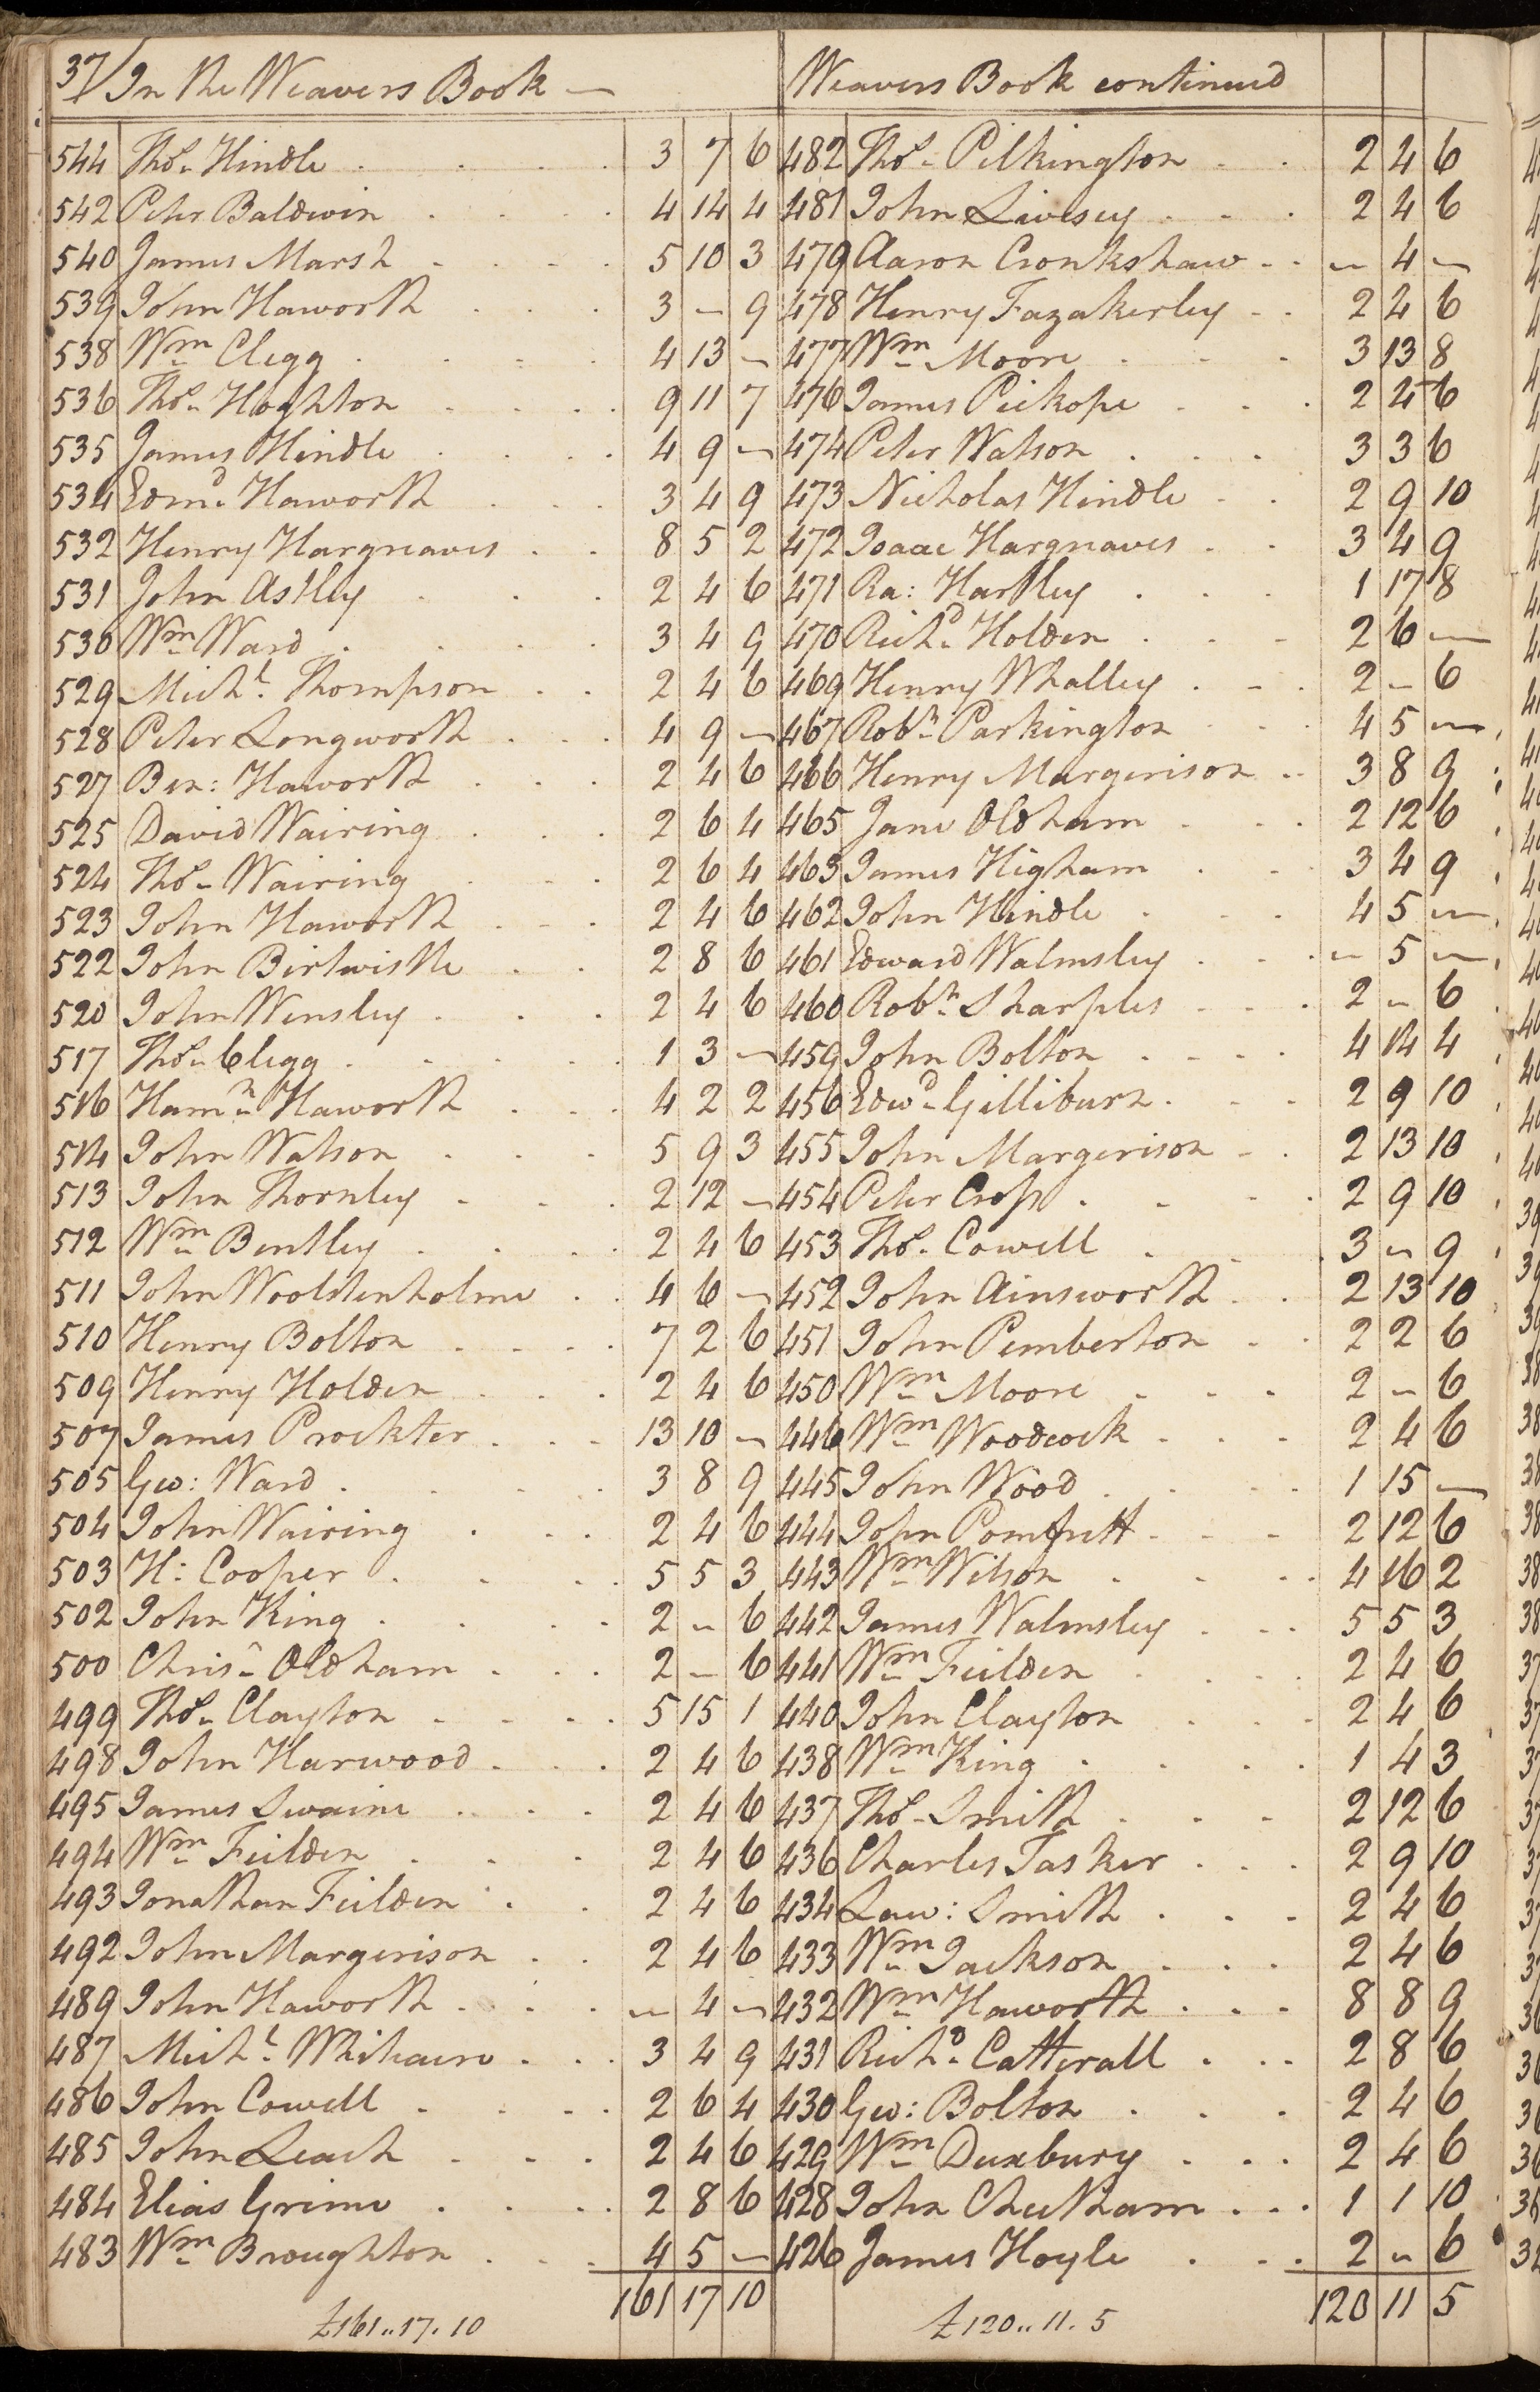 37/ In the Weavers Book —
544 Thos. Hindle . . . . . 3 7 6
542 Peter Baldwin . . . . 4 14 4
540 James Marsh . . . . 5 10 3
539 John Haworth . . . 3 – 9
538 Wm Clegg . . . . 4 13 –
536 Thos. Hoghton . . . . 9 11 7
535 James Hindle . . . . 4 9 –
534 Edmd. Haworth . . . 3 4 9
532 Henry Hargreaves . . 8 5 2
531 John Astley . . . 2 4 6
530 Wm Ward . . . . 3 4 9
529 Michl. Thompson . . 2 4 6
528 Peter Longworth . . . 4 9 –
527 Ben: Haworth . . . 2 4 6
525 David Wairing . . . 2 6 4
524 Thos. Wairing . . . 2 6 4
523 John Haworth . . . 2 4 6
522 John Birtwistle . . 2 8 6
520 John Wensley . . . 2 4 6
517 Thos. Clegg . . . . . 1 3 –
516 Hamn. Haworth . . . 4 2 2
514 John Watson . . . 5 9 3
513 John Thornley . . . 2 12 –
512 Wm Bentley . . . . 2 4 6
511 John Woolstenholme . . 4 6 –
510 Henry Bolton . . . . 7 2 6
509 Henry Holden . . . 2 4 6
507 James Prockter . . . 13 10 –
505 Geo: Ward . . . . 3 8 9
504 John Wairing . . . 2 4 6
503 H: Cooper . . . . 5 5 3
502 John King . . . . 2 – 6
500 Chrisr. Oldham . . . 2 – 6
499 Thos. Clayton . . . . 5 15 1
498 John Harwood . . . 2 4 6
495 James Swaine . . . . 2 4 6
494 Wm Feilden . . . 2 4 6
493 Jonathan Feilden . . 2 4 6
492 John Margerison . . 2 4 6
489 John Haworth . . . . – 4 –
487 Michl. Whitham . . . 3 4 9
486 John Cowell . . . . 2 6 4
485 John Leach . . . 2 4 6
484 Elias Grime . . . . 2 8 6
483 Wm Broughton . . . 4 5 –
161 17 10
£161..17.10
Weavers Book continued
482 Thos. Pilkington . . 2 4 6
481 John Livesey . . . 2 4 6
479 Aaron Cronkshaw . . – 4 –
478 Henry Fazakerley . . 2 4 6
477 Wm Moore . . . 3 13 8
476 James Pickope . . . 2 4 6
474 Peter Watson . . . 3 3 6
473 Nicholas Hindle . . 2 9 10
472 Isaac Hargreaves . . 3 4 9
471 Ra: Hartley . . . 1 17 8
470 Richd. Holden . . . 2 6 –
469 Henry Whalley . . . 2 – 6
467 Robt. Parkington . . 4 5 –
466 Henry Margerison . . 3 8 9
465 Jane Oldham . . . 2 12 6
463 James Higham . . 3 4 9
462 John Hindle . . . 4 5 –
461 Edward Walmsley . . . – 5 –
460 Robt. Sharples . . . 2 – 6
459 John Bolton . . . . 4 14 4
456 Edwd. Gilliburn . . . 2 9 10
455 John Margerison . . 2 13 10
454 Peter Cross . . . 2 9 10
453 Thos. Cowell . . . 3 – 9
452 John Ainsworth . . 2 13 10
451 John Pemberton . . 2 2 6
450 Wm Moore . . . 2 – 6
446 Wm Woodcock . . . 2 4 6
445 John Wood . . . 1 15 –
444 John Pomfrett . . . 2 12 6
443 Wm Wilson . . . . 4 16 2
442 James Walmsley . . . 5 5 3
441 Wm Feilden . . . . 2 4 6
440 John Clayton . . . 2 4 6
438 Wm King . . . . 1 4 3
437 Thos. Smith . . . 2 12 6
436 Charles Tasker . . . 2 9 10
434 Law: Smith . . . 2 4 6
433 Wm Jackson . . . 2 4 6
432 Wm Haworth . . . 8 8 9
431 Richd. Catterall . . . 2 8 6
430 Geo: Bolton . . . 2 4 6
429 Wm Duxbury . . . 2 4 6
428 John Cheetham . . . 1 1 10
426 James Hoyle . . . 2 – 6
120 11 5
£120..11.5